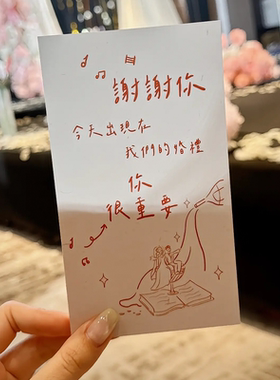 謝謝你
今天出現在
我們的婚禮
你
很重要